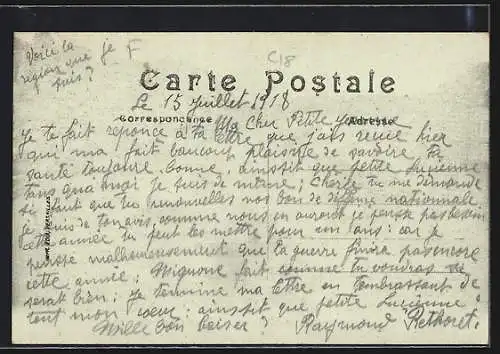 Voici la
région que je F
suis ?
C18
Carte Postale
Le 15 Juillet 1918
Correspondance
Adresse
Ma Cher Petite
Je te fait réponce à ta lettre que j'ais reçue hier
qui ma fait baucoup plaisire de savoire ta
santé toujours bonne, ainssit que petite Lucienne
tans qua moi je suis de même ; Cherie tu me demande
si faut que tu renouvelles nos bon de défense nationale
je suis de ton avis, comme nous en auront je pense pas besoin
cette année tu peut les mettre pour un ans : car je
pense malheureusement que la guerre finira pas encore
cette année ; Mignone fait comme tu voudras se
serat bien ; Je termine ma lettre en t'embrassant de
tout mon cœur : ainssit que petite Lucienne
Mille bon baiser ? Raymond Rethoret.